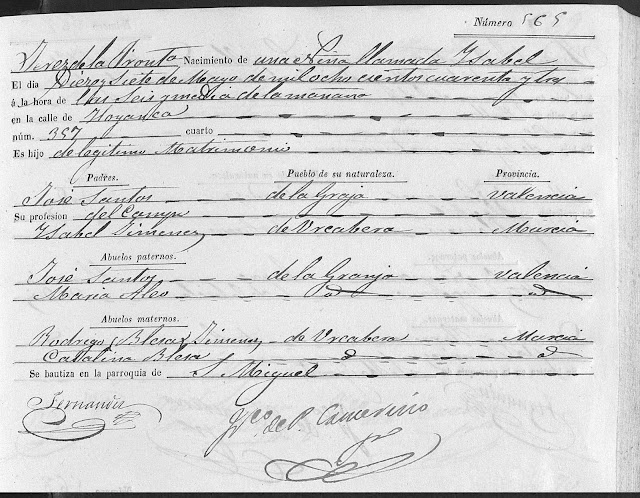 Número 565
Jerez de la Fronta Nacimiento de una Niña llamada Ysabel
El dia Diez y Siete de Mayo de mil ocho cientos cuarenta y tres
á la hora de las Seis y media de la manana
en la calle de Hoyanca
núm. 357 cuarto
Es hijo de legitimo Matrimonio
Padres. Pueblo de su naturaleza. Provincia.
José Santos de la Graja Valencia
Su profesion del Campo
Ysabel Jimenez de Urcabera Murcia
Abuelos paternos.
José Santos de la Granja Valencia
Maria Aleo d d
Abuelos maternos.
Rodrigo (Blesa) Jimenez de Urcabera Murcia
Catalina Blesa d d
Se bautiza en la parroquia de S Miguel
Fernandez
de P. Camerino